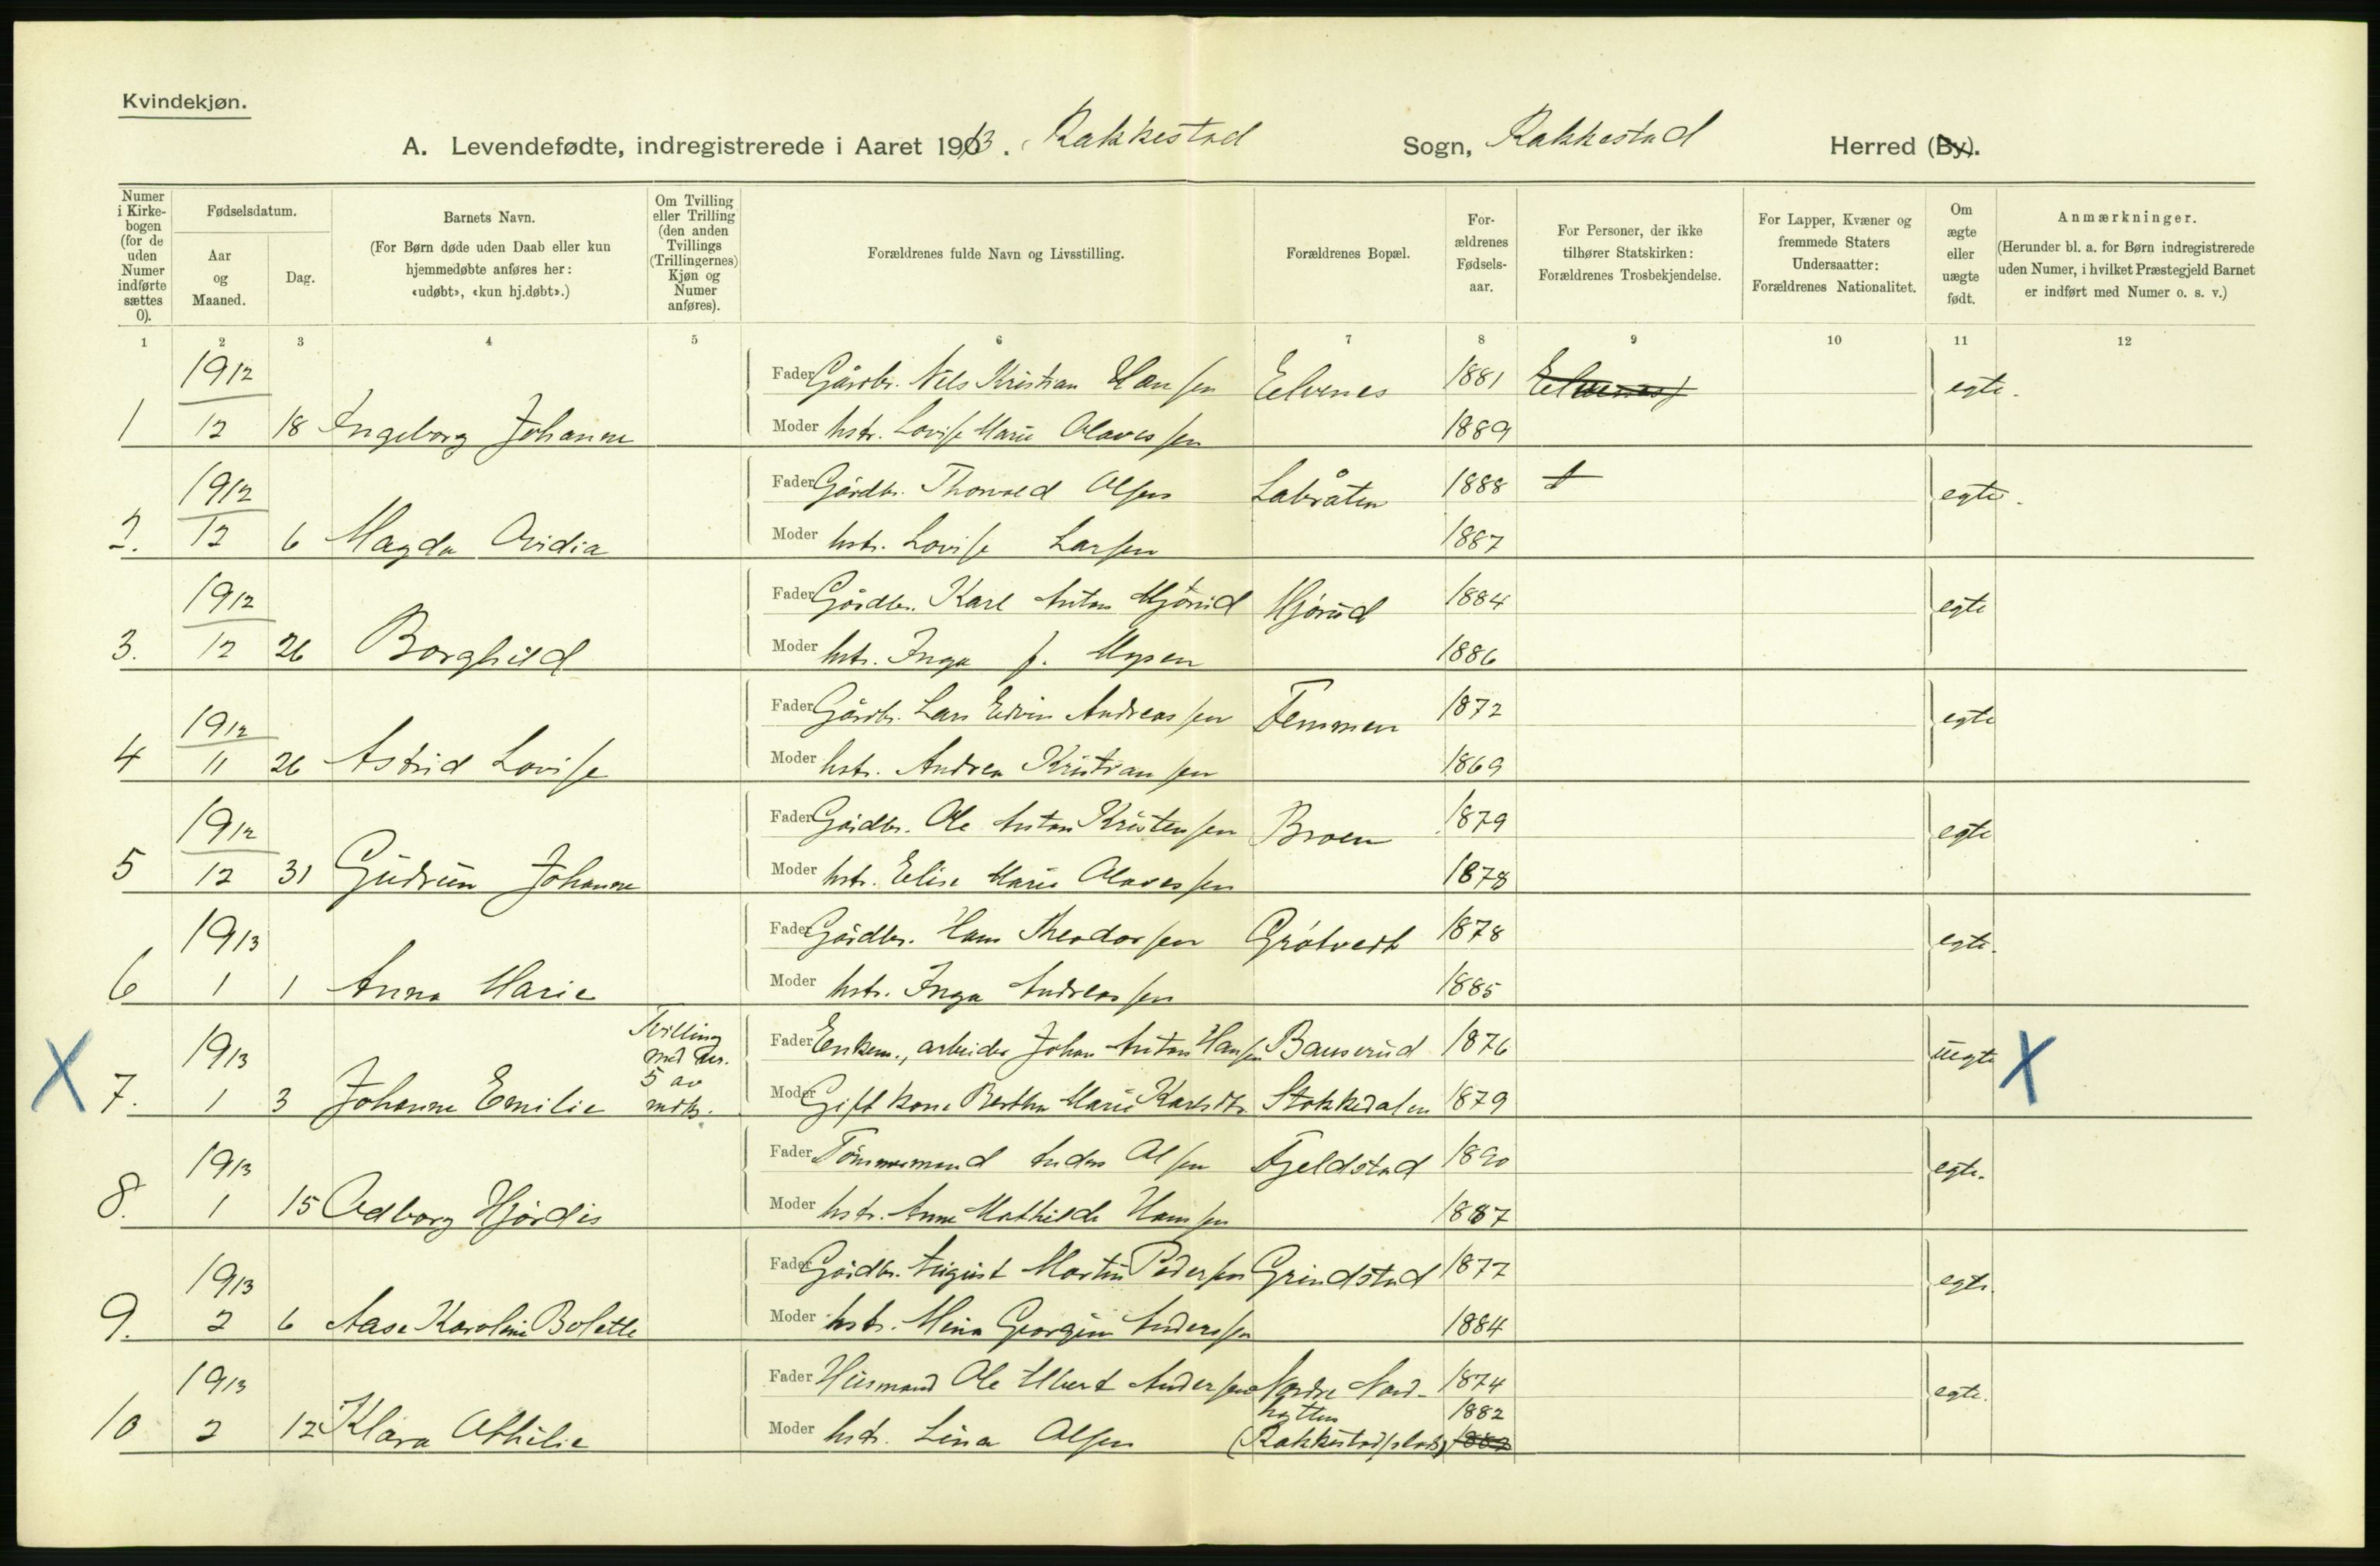 Kvindekjøn.
A. Levendefødte, indregistrerede i Aaret 1913. Rakkestad Sogn, Rakkestad Herred (By).
Numer i Kirke-bogen (for de uden Numer indførte sættes 0).
Fødselsdatum.
Aar og Maaned.
Dag.
Barnets Navn.
(For Børn døde uden Daab eller kun hjemmedøbte anføres her: «udøbt», «kun hj.døbt».)
Om Tvilling eller Trilling (den anden Tvillings (Trillingernes) Kjøn og Numer anføres).
Forældrenes fulde Navn og Livsstilling.
Forældrenes Bopæl.
For-ældrenes Fødsels-aar.
For Personer, der ikke tilhører Statskirken: Forældrenes Trosbekjendelse.
For Lapper, Kvæner og fremmede Staters Undersaatter: Forældrenes Nationalitet.
Om ægte eller uægte født.
Anmærkninger.
(Herunder bl. a. for Børn indregistrerede uden Numer, i hvilket Præstegjeld Barnet er indført med Numer o. s. v.)
1 2 3 4 5 6 7 8 9 10 11 12
1912 Fader Gårdbr. Nils Kristian Hansen Eelvenes 1881 Eelvenes egte.
1 12 18 Ingeborg Johanne Moder hstr. Lovise Marie Olavessen 1889
1912 Fader Gårdbr. Thorvald Olsen Labråten 1888 egte.
2. 12 6 Magda Ovidia Moder hstr. Lovise Larsen 1887
1912 Fader Gårdbr. Karl Anton Mjørud Mjørud 1884 egte
3. 12 26 Borghild Moder hstr. Inga f. Mysen 1886
1912 Fader Gårdbr. Lars Edvin Andreassen Temmen 1872 egte
4 11 26 Astrid Lovise Moder hstr. Andrea Kristiansen 1869
1912 Fader Gårdbr. Ole Anton Kristensen Broen 1879 egte
5 12 31 Gudrun Johanne Moder hstr. Elise Marie Olavessen 1878
1913 Fader Gårdbr. Hans Theodorsen Grøtvedt 1878 egte.
6 1 1 Anna Marie Moder hstr. Inga Andreassen 1885
1913 Tvilling med nr. Fader Enkem., arbeider Johan Anton Hansen Bauserud 1876 uegte
7. 1 3 Johanne Emilie 5 av mdkj. Moder Gift kone Berthe Marie Karlsdtr. Stokkedalen 1879
1913 Fader Tømmermand Anders Olsen Fjeldstad 1890 egte.
8. 1 15 Odborg Hjørdis Moder hstr. Anne Mathilde Hansen 1887
1913 Fader Gårdbr. August Martin Pedersen Grindstad 1877 egte.
9. 2 6 Aase Karoline Bolette Moder hstr. Mina Georgine Anderssen 1884
1913 Fader Husmand Ole Albert Andersen Nordre Nord- 1874 egte.
hytten 1882
10 2 12 Klara Othilie Moder hstr. Lina Olsen (Rakkestad plads)